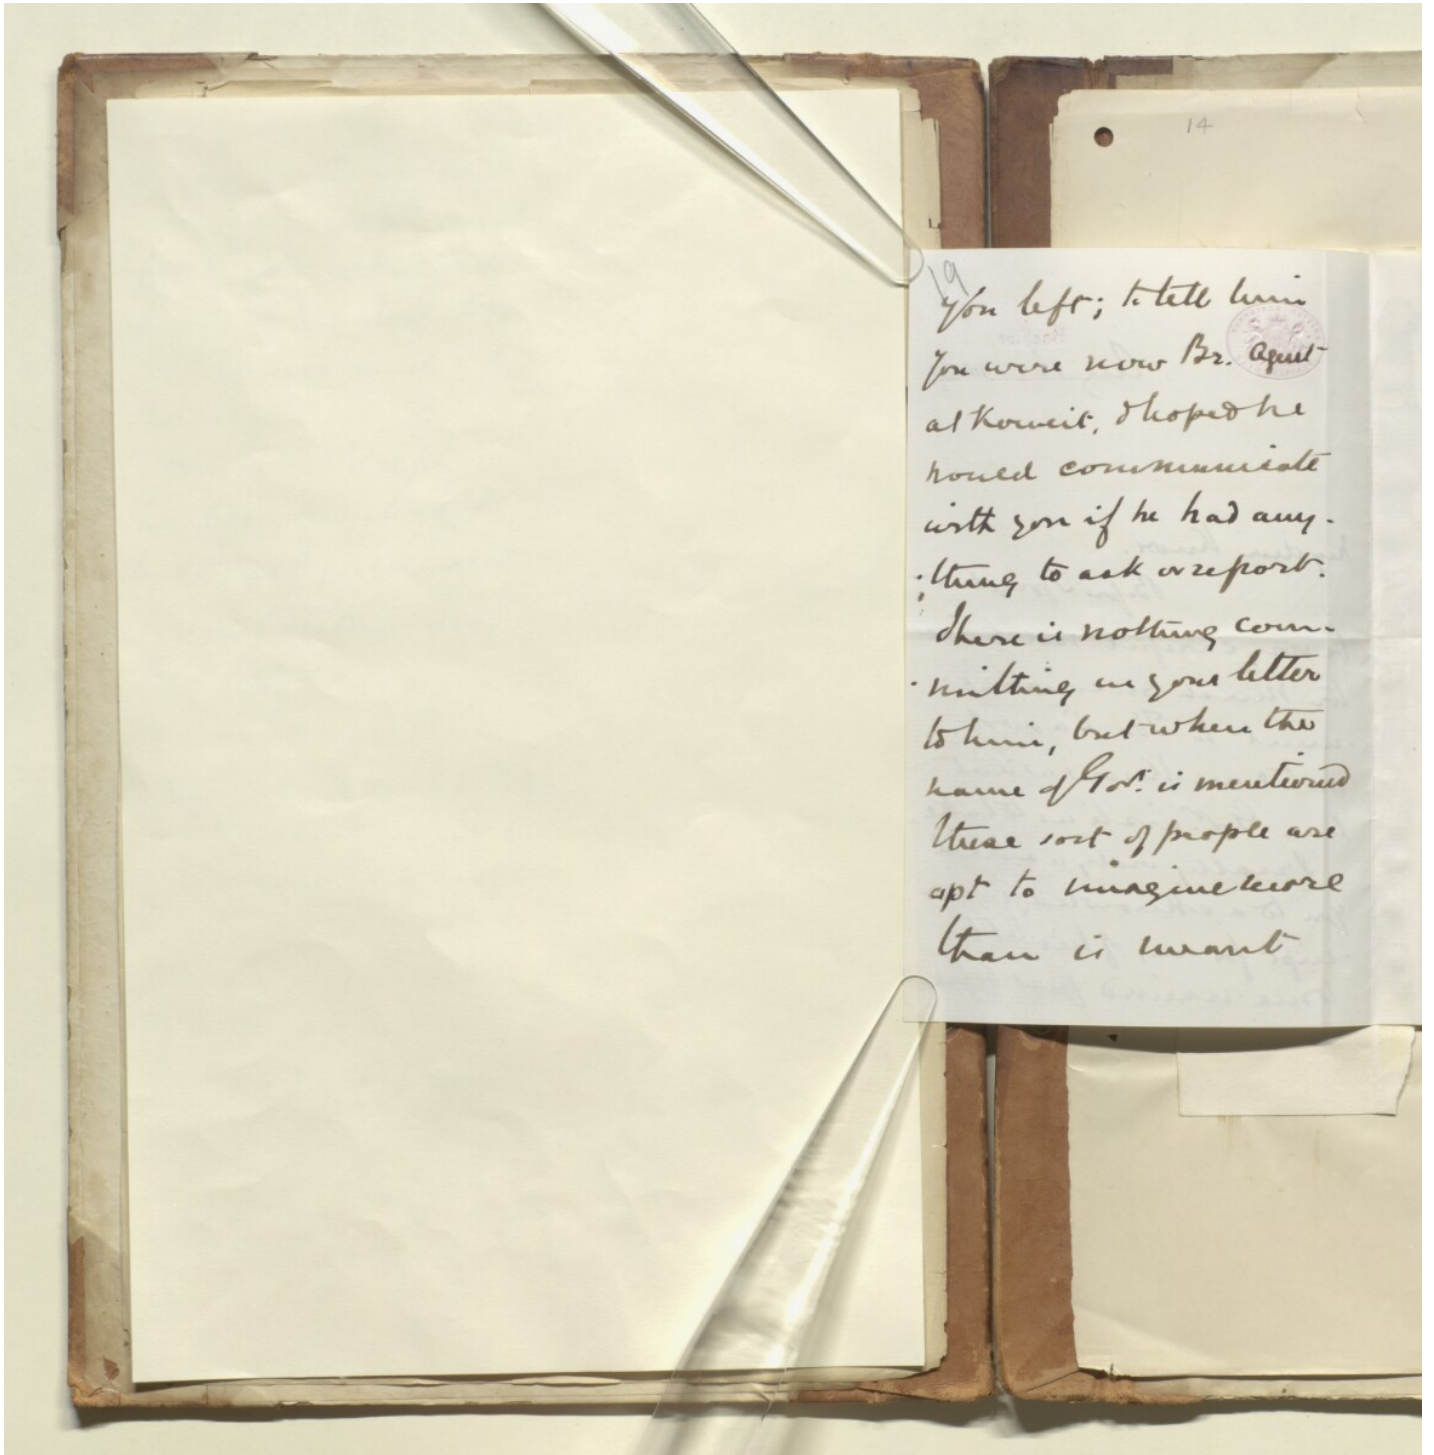 14
19
you left; to tell him
you were now Br. Agent
at Koweit, & hoped he
would communicate
with you if he had any-
:thing to ask or report.
There is nothing com-
-mitting in your letter
to him, but when the
name of Govt. is mentioned
these sort of people are
apt to imagine more
than is meant